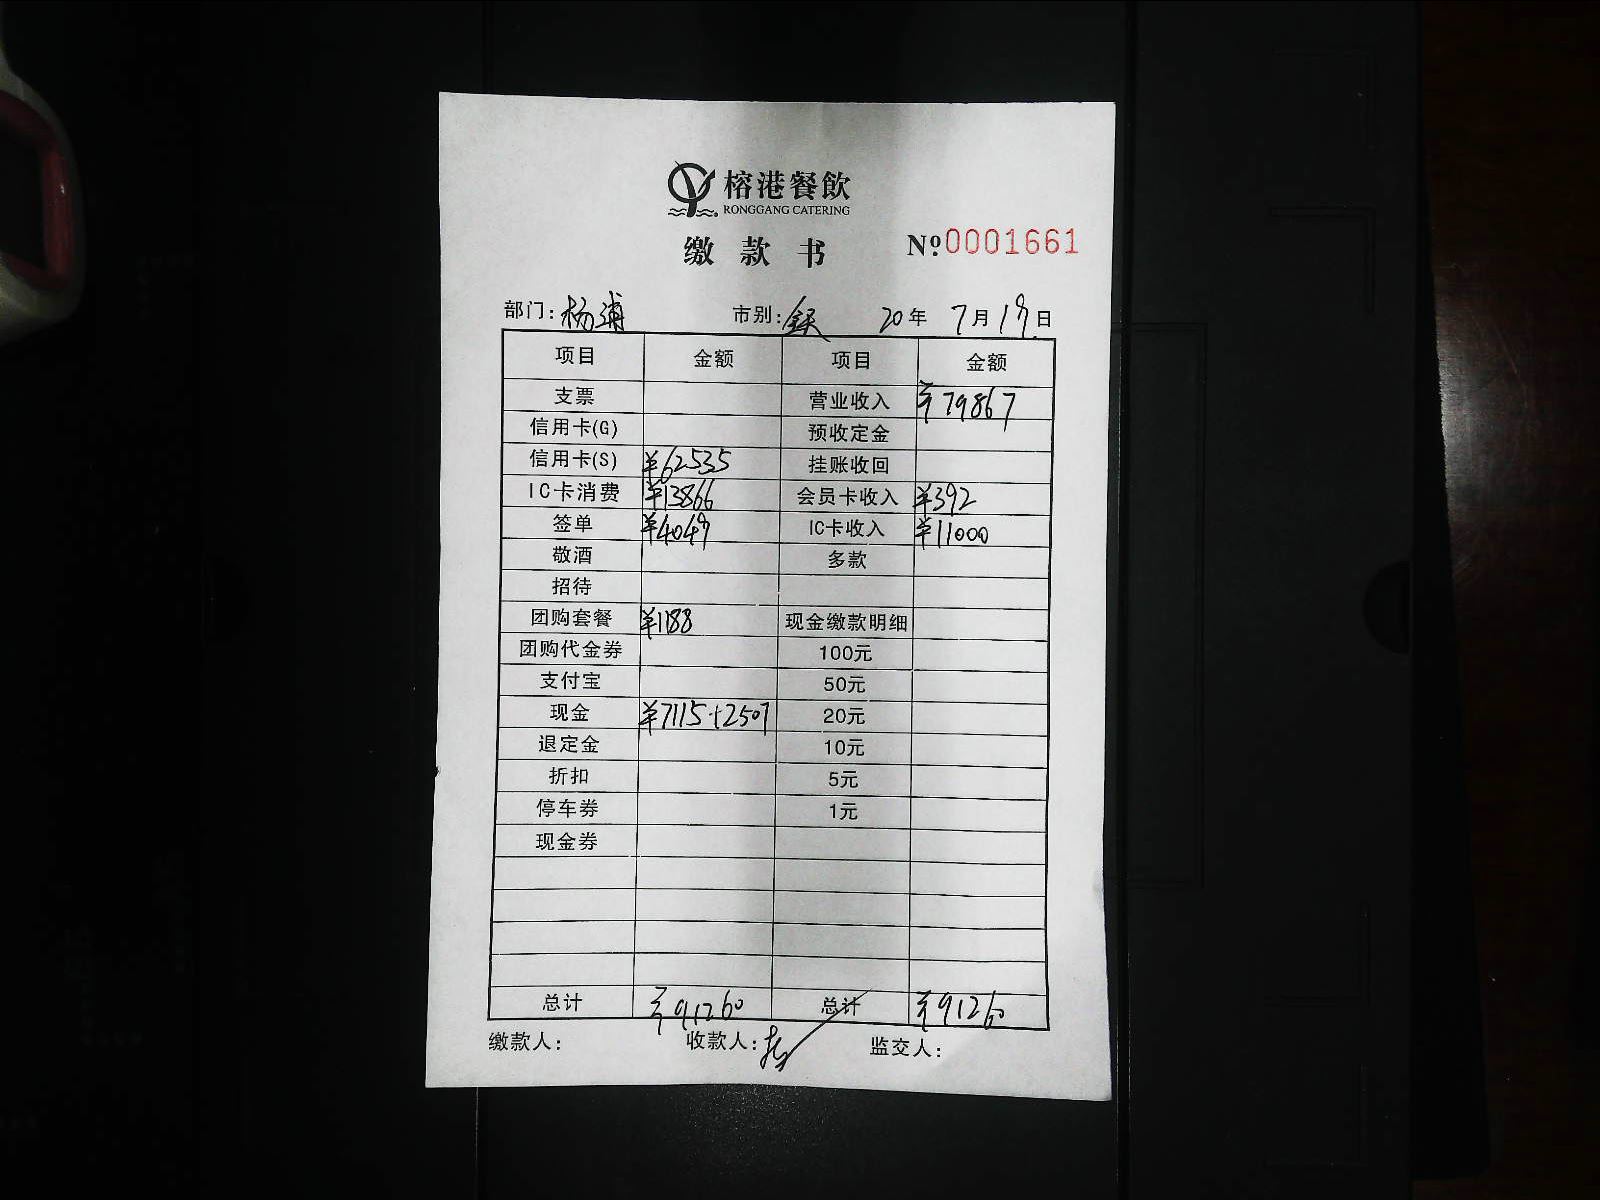 榕港餐飲
RONGGANG CATERING
缴款书 №0001661
部门: 杨浦 市别: 全天 20年 7月19日
项目 金额 项目 金额
支票 营业收入 ¥79867
信用卡(G) 预收定金
信用卡(S) ¥62535 挂账收回
IC卡消费 ¥13866 会员卡收入 ¥392
签单 ¥4049 IC卡收入 ¥11000
敬酒 多款
招待
团购套餐 ¥1188 现金缴款明细
团购代金券 100元
支付宝 50元
现金 ¥7115+2507 20元
退定金 10元
折扣 5元
停车券 1元
现金券
总计 ¥91260 总计 ¥91260
缴款人: 收款人: 监交人: